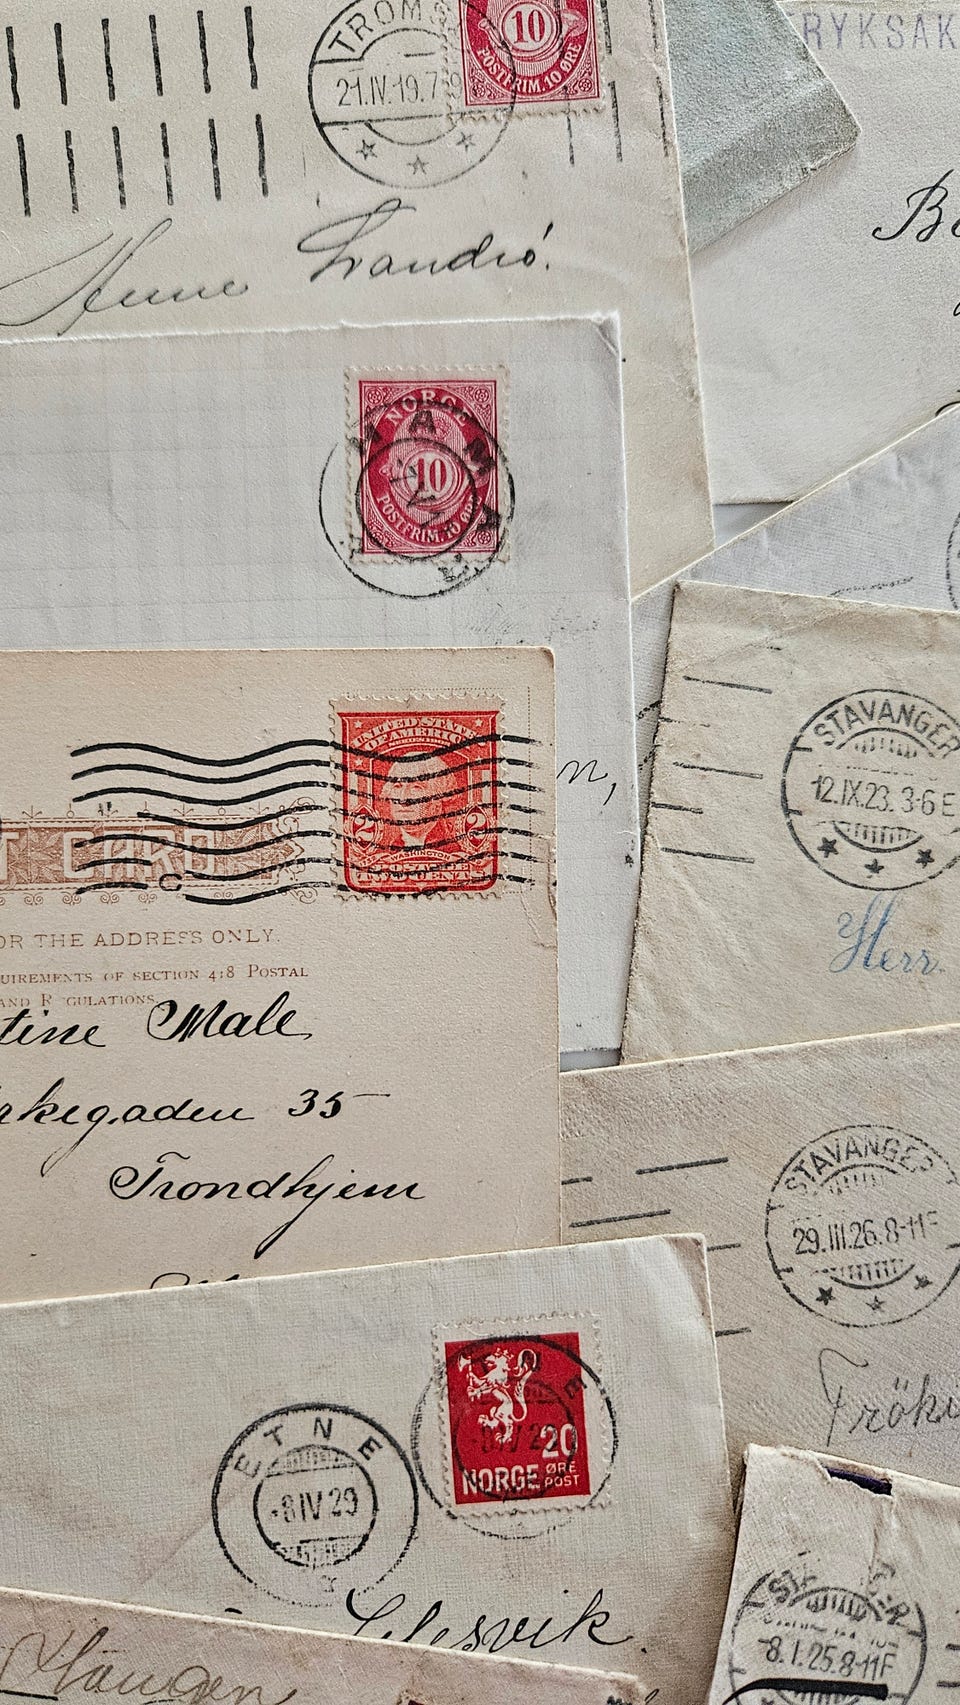 TROMS
21.IV.19.7
10
POSTFRIM. 10 ØRE
RYKSAK
Anne
NORGE
10
POSTFRIM. 10 ØRE
HAMA
UNITED STATES
OF AMERICA
2 2
WASHINGTON
TWO CENTS
n,
T CARD
OR THE ADDRESS ONLY.
UIREMENTS OF SECTION 418 POSTAL
AND R GULATIONS
tine Male
rkegaden 35
Trondhjem
STAVANGER
12.IX.23. 3-6 E
Herr
STAVANGER
29.III.26. 8-11F
Frök
ETNE
-8 IV 29
ETNE
20
NORGE ØRE
POST
8.1.25.8-11F